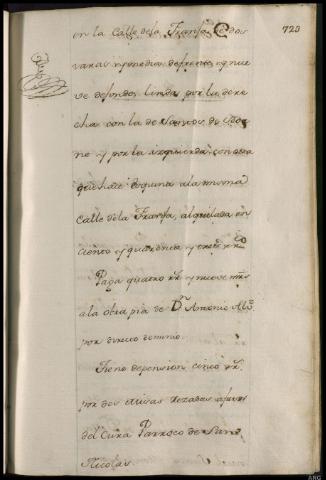 723
en la Calle de la Franja, de dos
varas y media de frente, y nue
ve de fondo, linda por la dere
cha con la de Santos de
no y por la izquierda con otra
que hace esquina a la misma
Calle de la Franja, alquilada en
ciento y quarenta y rr.
Paga quatro rr. y nueve mrs
a la obra pia de Dn. Antonio
por directo dominio.
Tiene de pension cinco rr.
por dos Misas rezadas a favor
del Cura Parroco de San
Nicolas.
ANG